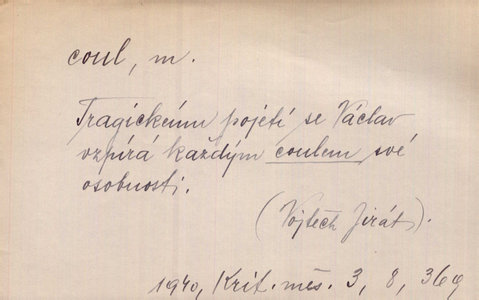 coul, m.
Tragickému pojetí se Václav
vzpírá každým coulem své
osobnosti.
(Vojtěch Jirát).
1940, Krit. měs. 3, 8, 369